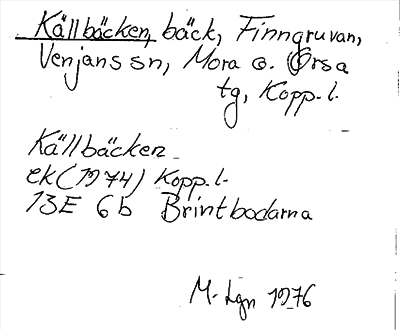 Källbäcken, bäck, Finngruvan,
Venjans sn, Mora o. Orsa
tg, Kopp. l.
Källbäcken
ek (1974) Kopp. l.
13E 6b Brintbodarna
M. Lgn 1976